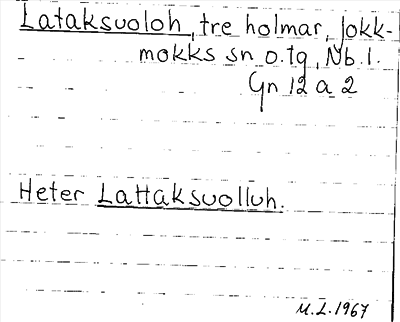 Lataksuoloh, tre holmar, Jokk-
mokks sn o.tg, Nb.l.
Gn 12 a 2
Heter Lattaksuolluh.
M.L.1967